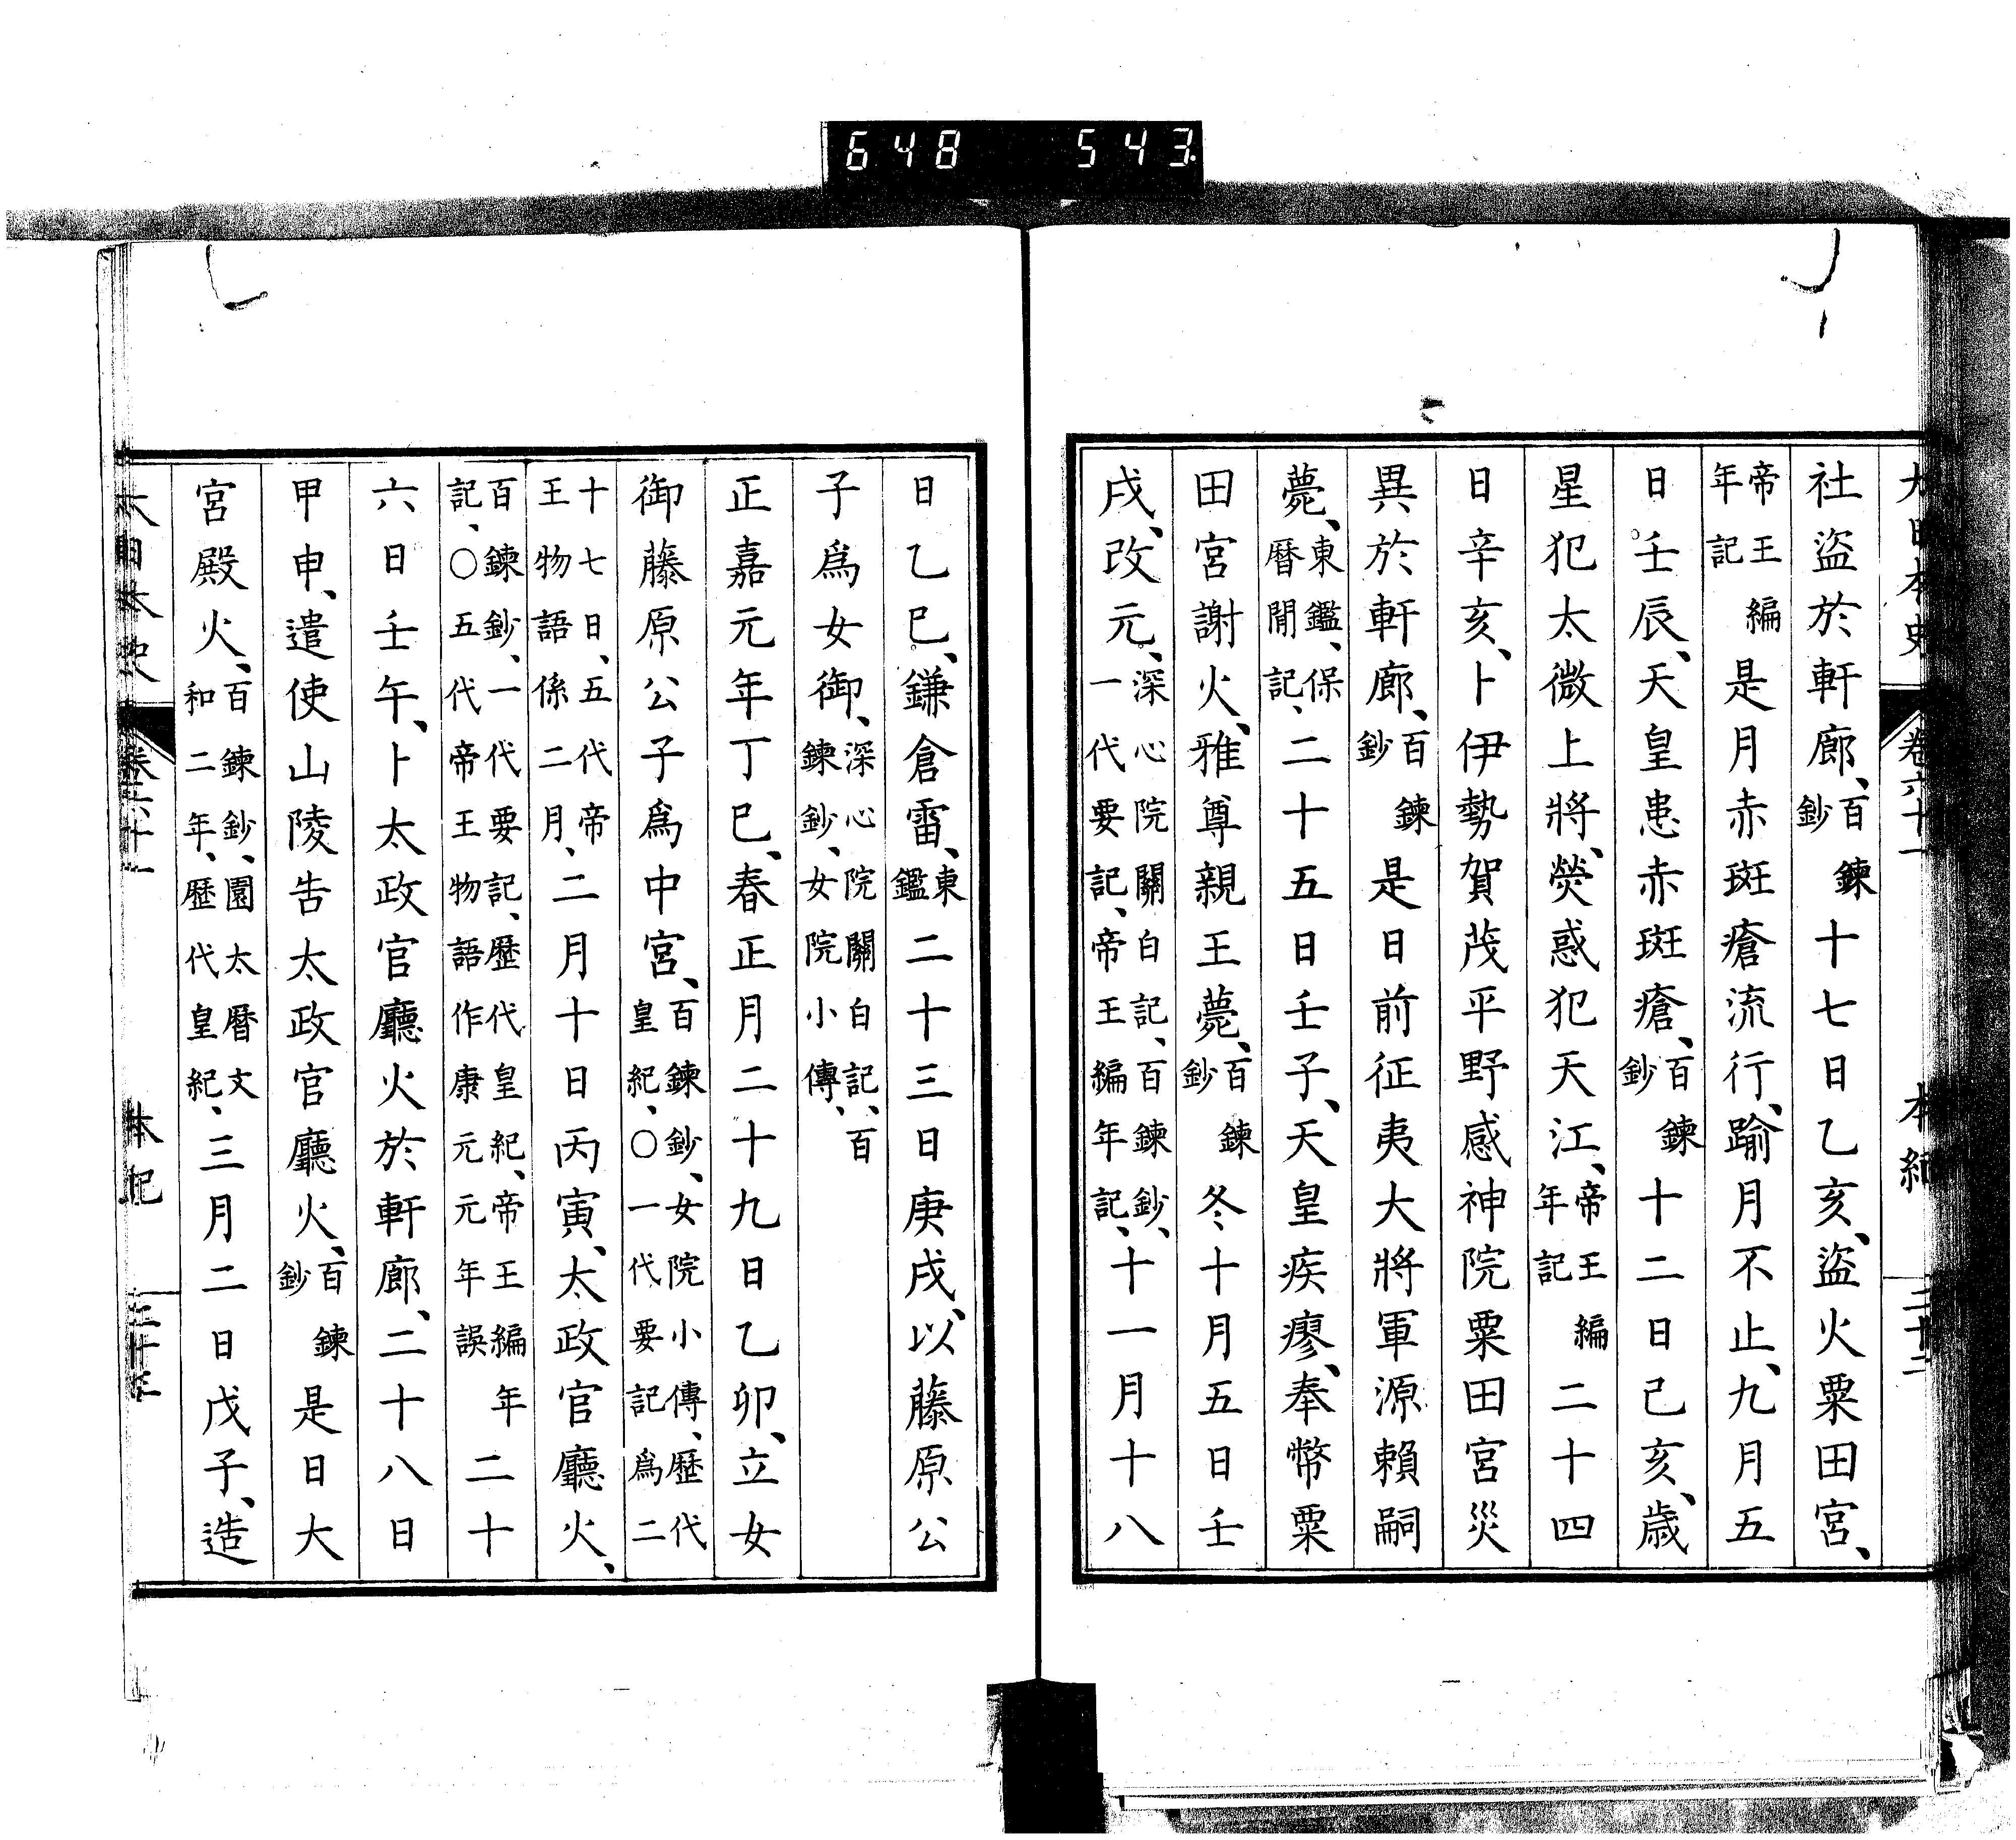 648 543
大日本史 卷六十一 本紀 三十二
社盜於軒廊、百鍊鈔十七日乙亥、盜火粟田宮、
帝王編年記是月赤斑瘡流行、踰月不止、九月五
日壬辰、天皇患赤斑瘡、百鍊鈔十二日己亥、歳
星犯太微上將、熒惑犯天江、帝王編年記二十四
日辛亥、卜伊勢賀茂平野感神院粟田宮災
異於軒廊、百鍊鈔是日前征夷大將軍源賴嗣
薨、東鑑、保曆間記、二十五日壬子、天皇疾瘳、奉幣粟
田宮謝火、雅尊親王薨、百鍊鈔冬十月五日壬
戌、改元、深心院關白記、百鍊鈔、一代要記、帝王編年記、十一月十八
日乙巳、鎌倉雷、東鑑二十三日庚戌、以藤原公
子爲女御、深心院關白記、百鍊鈔、女院小傳、
正嘉元年丁巳、春正月二十九日乙卯、立女
御藤原公子爲中宮、百鍊鈔、女院小傳、歷代皇紀、〇一代要記爲二
十七日、五代帝王物語係二月、二月十日丙寅、太政官廳火、
百鍊鈔、一代要記、歷代皇紀、帝王編年記、〇五代帝王物語作康元元年誤二十
六日壬午、卜太政官廳火於軒廊、二十八日
甲申、遣使山陵告太政官廳火、百鍊鈔是日大
宮殿火、百鍊鈔、園太曆文和二年、歷代皇紀、三月二日戊子、造
大日本史 卷六十一 本紀 三十三